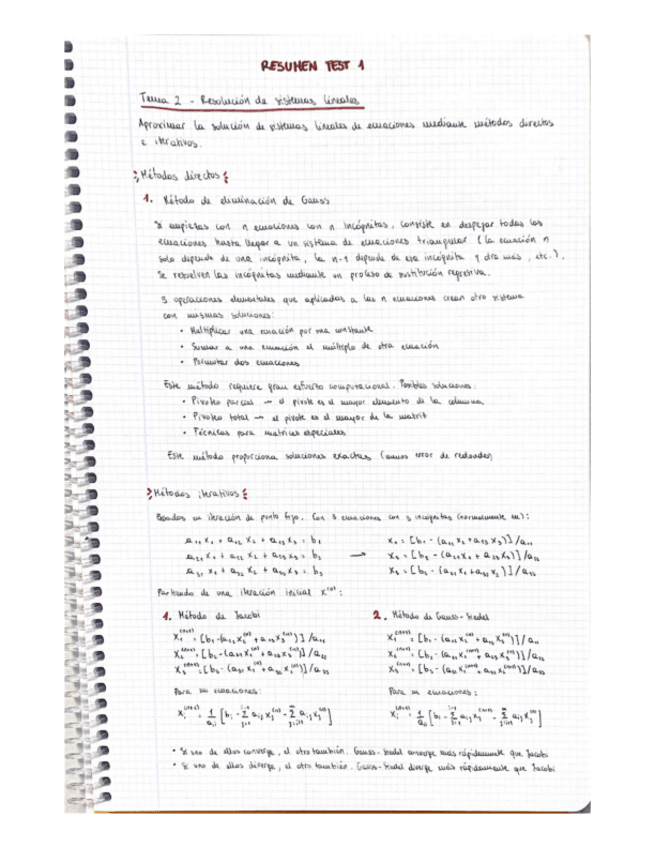 RESUMEN TEST 1
Tema 2 - Resolución de sistemas lineales
Aproximar la solución de sistemas lineales de ecuaciones mediante métodos directos
e iterativos.
Métodos directos
1. Método de eliminación de Gauss
Si empiezas con n ecuaciones con n incógnitas, consiste en despejar todas las
ecuaciones hasta llegar a un sistema de ecuaciones triangular (la ecuación n
solo depende de una incógnita, la n-1 depende de esa incógnita y otra más, etc.).
Se resuelven las incógnitas mediante un proceso de sustitución regresiva.
3 operaciones elementales que aplicadas a las n ecuaciones crean otro sistema
con mismas soluciones:
• Multiplicar una ecuación por una constante
• Sumar a una ecuación el múltiplo de otra ecuación
• Permutar dos ecuaciones
Este método requiere gran esfuerzo computacional. Posibles soluciones:
• Pivoteo parcial → el pivote es el mayor elemento de la columna
• Pivoteo total → el pivote es el mayor de la matriz
• Técnicas para matrices especiales
Este método proporciona soluciones exactas (menos error de redondeo)
Métodos iterativos
Basados en iteración de punto fijo. Con 3 ecuaciones con 3 incógnitas (normalmente m):
a₁₁ x₁ + a₁₂ x₂ + a₁₃ x₃ = b₁ x₁ = [b₁ - (a₁₂ x₂ + a₁₃ x₃)] / a₁₁
a₂₁ x₁ + a₂₂ x₂ + a₂₃ x₃ = b₂ → x₂ = [b₂ - (a₂₁ x₁ + a₂₃ x₃)] / a₂₂
a₃₁ x₁ + a₃₂ x₂ + a₃₃ x₃ = b₃ x₃ = [b₃ - (a₃₁ x₁ + a₃₂ x₂)] / a₃₃
Partiendo de una iteración inicial x⁽⁰⁾:
1. Método de Jacobi
x₁⁽ⁿ⁺¹⁾ = [b₁ - (a₁₂ x₂⁽ⁿ⁾ + a₁₃ x₃⁽ⁿ⁾)] / a₁₁
x₂⁽ⁿ⁺¹⁾ = [b₂ - (a₂₁ x₁⁽ⁿ⁾ + a₂₃ x₃⁽ⁿ⁾)] / a₂₂
x₃⁽ⁿ⁺¹⁾ = [b₃ - (a₃₁ x₁⁽ⁿ⁾ + a₃₂ x₂⁽ⁿ⁾)] / a₃₃
Para m ecuaciones:
2. Método de Gauss-Seidel
x₁⁽ⁿ⁺¹⁾ = [b₁ - (a₁₂ x₂⁽ⁿ⁾ + a₁₃ x₃⁽ⁿ⁾)] / a₁₁
x₂⁽ⁿ⁺¹⁾ = [b₂ - (a₂₁ x₁⁽ⁿ⁺¹⁾ + a₂₃ x₃⁽ⁿ⁾)] / a₂₂
x₃⁽ⁿ⁺¹⁾ = [b₃ - (a₃₁ x₁⁽ⁿ⁺¹⁾ + a₃₂ x₂⁽ⁿ⁺¹⁾)] / a₃₃
Para m ecuaciones:
• Si uno de ellos converge, el otro también. Gauss-Seidel converge más rápidamente que Jacobi
• Si uno de ellos diverge, el otro también. Gauss-Seidel diverge más rápidamente que Jacobi